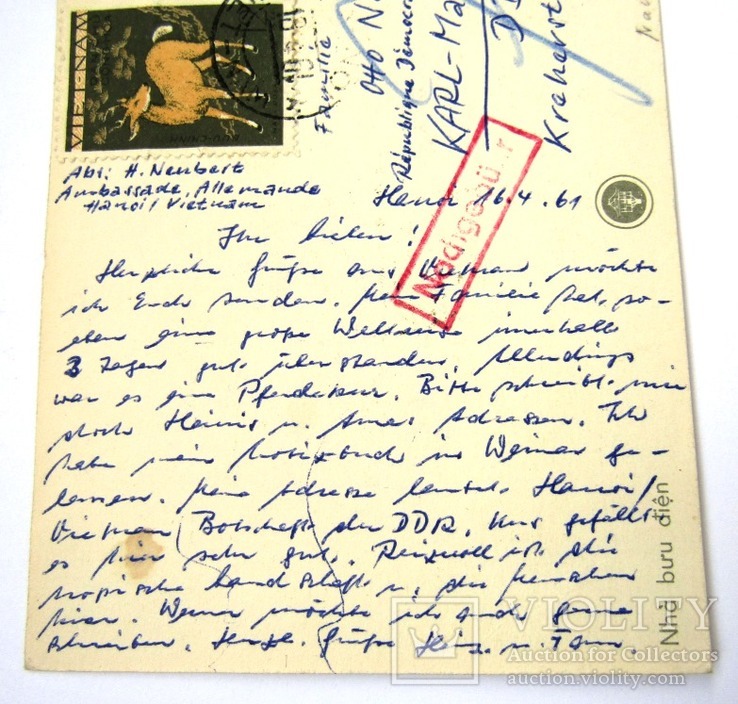 VIET-NAM
Familie
Otto
République Démocra
KARL-Ma
D D
Kreherst
Abs: H. Neubert
Ambassade Allemande
Hanoi / Vietnam
Hanoi 16.4.61
Ihr Lieben!
Herzliche Grüße aus Vietnam möchte
ich Euch senden. Meine Familie hat so-
eben eine große Weltreise innerhalb
3 Tagen gut überstanden. Allerdings
war es eine Pferdekur. Bitte schreibt mir
doch Heinis u. Adressen. Ich
habe mein Notizbuch in Weimar ge-
lassen. Meine Adresse lautet: Hanoi/
Vietnam Botschaft der DDR. Uns gefällt
es hier sehr gut. Reizvoll ist die
tropische Landschaft u. die Menschen
hier. Werner möchte ich auch gerne
schreiben. Herzl. Grüße Heinz u. Fam.
Nhà bưu điện
VIOLITY
Auction for Collectors
auction.violity.com